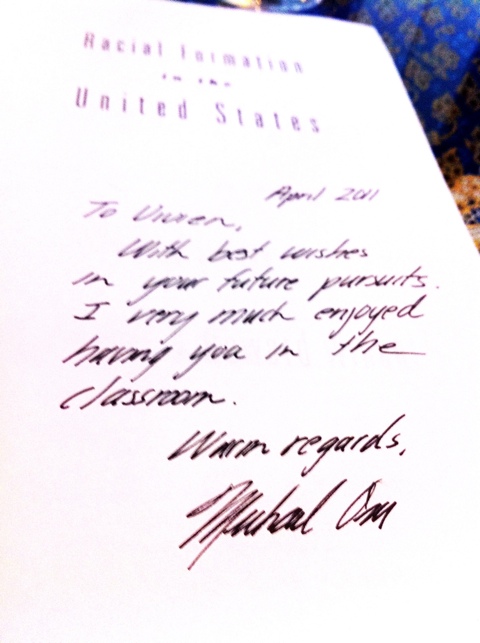 Racial Formation
in the
United States
April 2011
To Vivien,
With best wishes
in your future pursuits.
I very much enjoyed
having you in the
classroom.
Warm regards,
Michael Omi